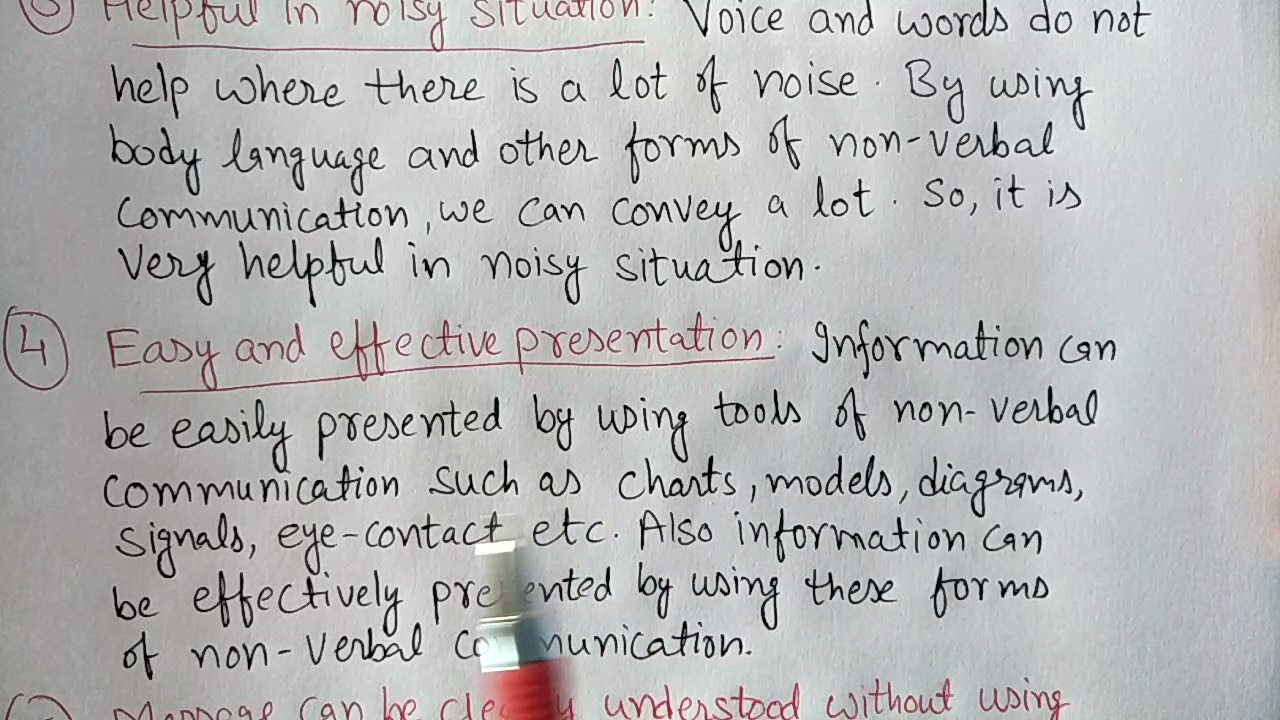 Helpful in noisy situation: Voice and words do not
help where there is a lot of noise. By using
body language and other forms of non-verbal
Communication, we can convey a lot. So, it is
Very helpful in noisy situation.
④ Easy and effective presentation: Information can
be easily presented by using tools of non-verbal
Communication such as charts, models, diagrams,
Signals, eye-contact etc. Also information can
be effectively presented by using these forms
of non-verbal communication.
Message can be clearly understood without using